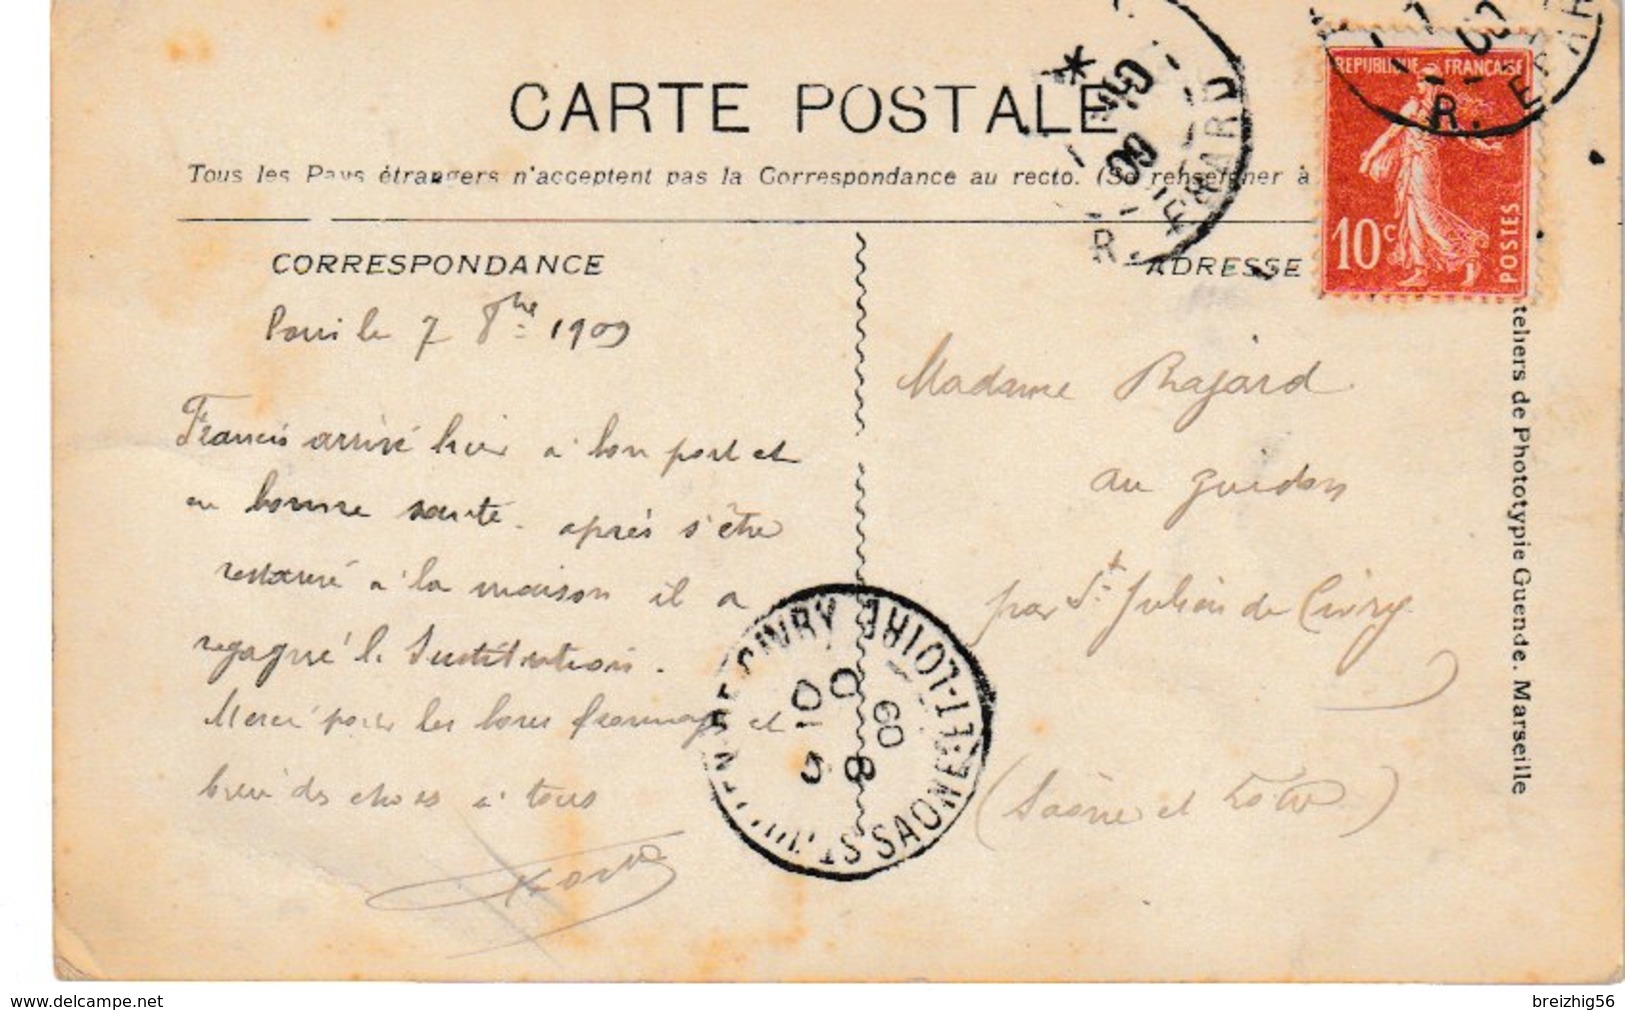 CARTE POSTALE
Tous les Pays étrangers n'acceptent pas la Correspondance au recto. (Se renseigner à
CORRESPONDANCE
Paris le 7 8bre 1909
Francis arrivé hier à bon port et
en bonne santé. après s'être
restauré à la maison il a
regagné l'Institution.
Merci pour les bons fromages et
bien des choses à tous
ADRESSE
Madame Rajard
au guidon
par St Julien de Civry
(Saône et Loire)
REPUBLIQUE FRANÇAISE
10c
POSTES
R. ERARD
09
R. ERAR
ST JULIEN-DE-CIVRY
SAONE-ET-LOIRE
8
10
09
teliers de Phototypie Guende. Marseille
www.delcampe.net
breizhig56